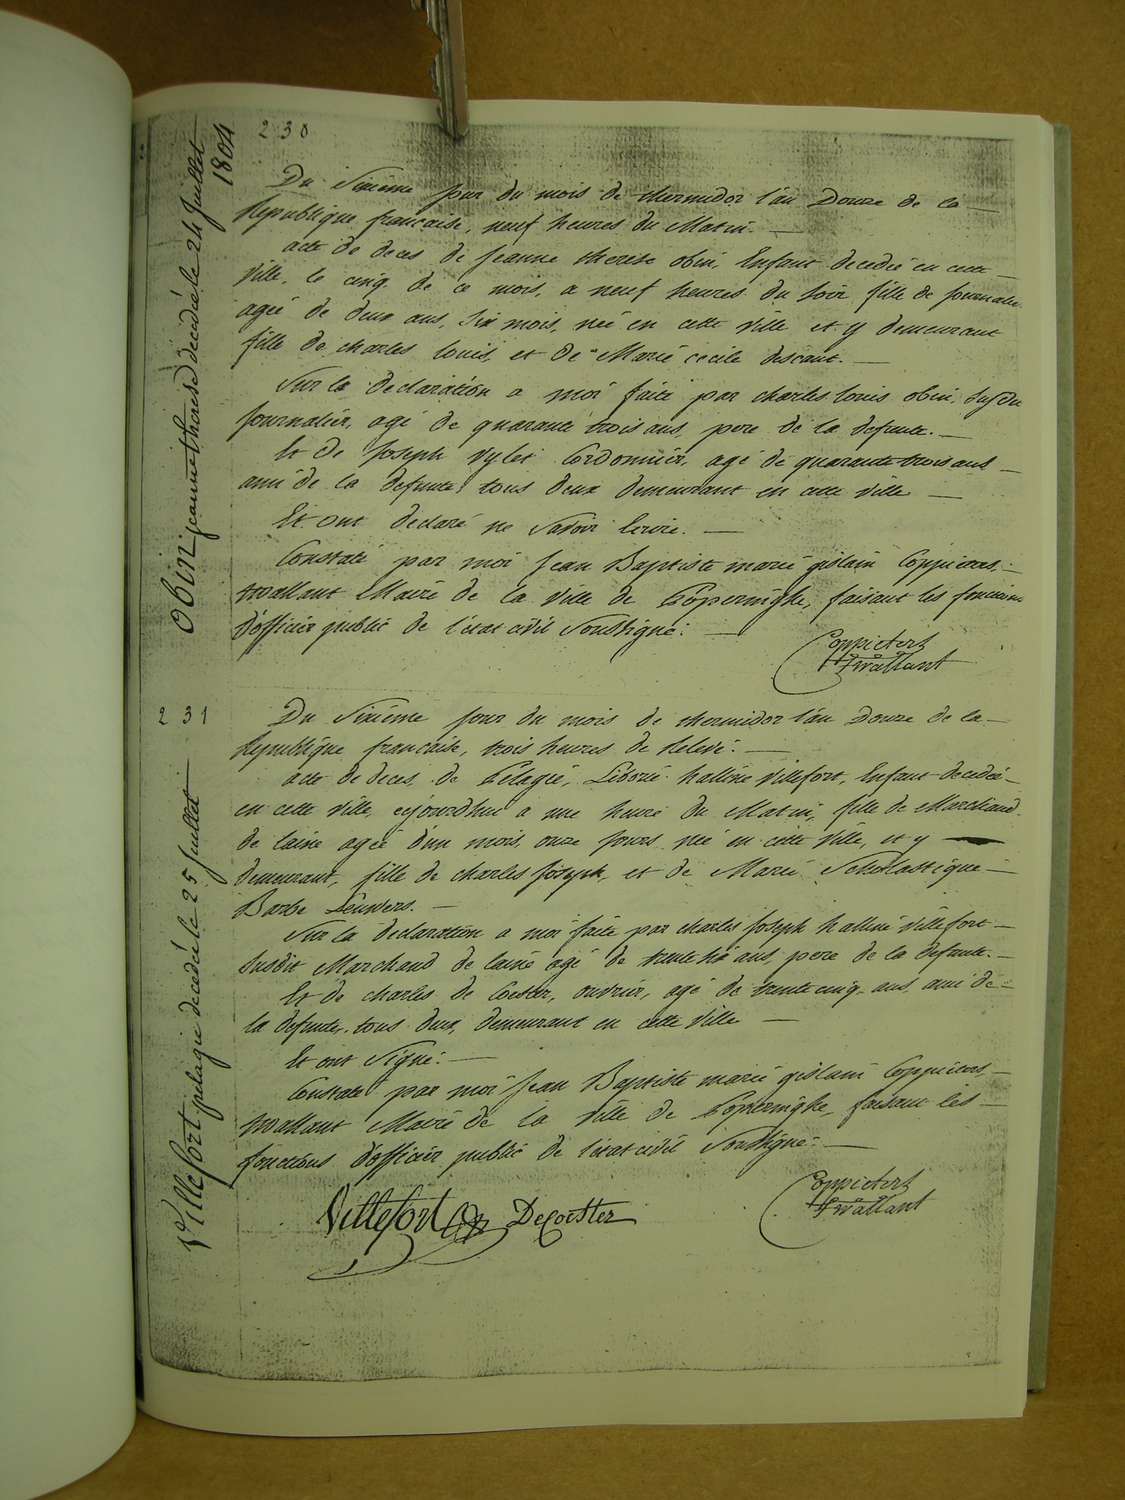 230
Obin jeanne therese décédé le 24 Juillet
1804
Du Sixieme jour du mois de thermidor l'an Douze de la
Republique francaise, neuf heures du Matin.
acte de deces de jeanne therese obin, Enfant decedée en cette
Ville, le cinq de ce mois, a neuf heures du soir, fille de journalier
agée de deux ans, six mois, née en cette ville et y demeurant
fille de charles louis, et de Marie cecile descant.
Sur la declaration a moi faite par charles louis obin, susdit
journalier, agé de quarante trois ans, pere de la defunte.
Et de joseph Vylet Cordonnier, agé de quarante trois ans
ami de la defunte, tous deux demeurant en cette ville
Et ont declaré ne savoir Ecrire.
Constaté par moi jean Baptiste marie gislain Coppieters,
trvallant Maire de la Ville de Poperinghe, faisant les fonctions
d'officier public de l'etat civil Soussigné.
Coppieters
trvallant
231
Villefort pelagie decedée le 25 Juillet
Du Sixieme jour du mois de thermidor l'an Douze de la
Republique francaise, trois heures de Relevé.
acte de deces, de Pelagie, Liborie hallinc Villefort, Enfant decedée
en cette ville, cejourdhui a une heure du Matin, fille de Marchand
de laine agée d'un mois, onze jours née en cette Ville, et y
demeurant, fille de charles joseph, et de Marie Scholastique
Barbe Leuwers.
Sur la declaration a moi faite par charles joseph hallinc Villefort
Susdit Marchand de laine agé de trente six ans, pere de la defunte.
Et de charles de Coester, ouvrier, agé de trente cinq ans, ami de
la defunte, tous deux, demeurant en cette Ville
Et ont Signé.
Constaté par moi jean Baptiste marie gislain Coppieters,
trvallant Maire de la Ville de Poperinghe, faisant les
fonctions d'officier public de l'etat civil Soussigné.
Villefort DeCoester
Coppieters
trvallant